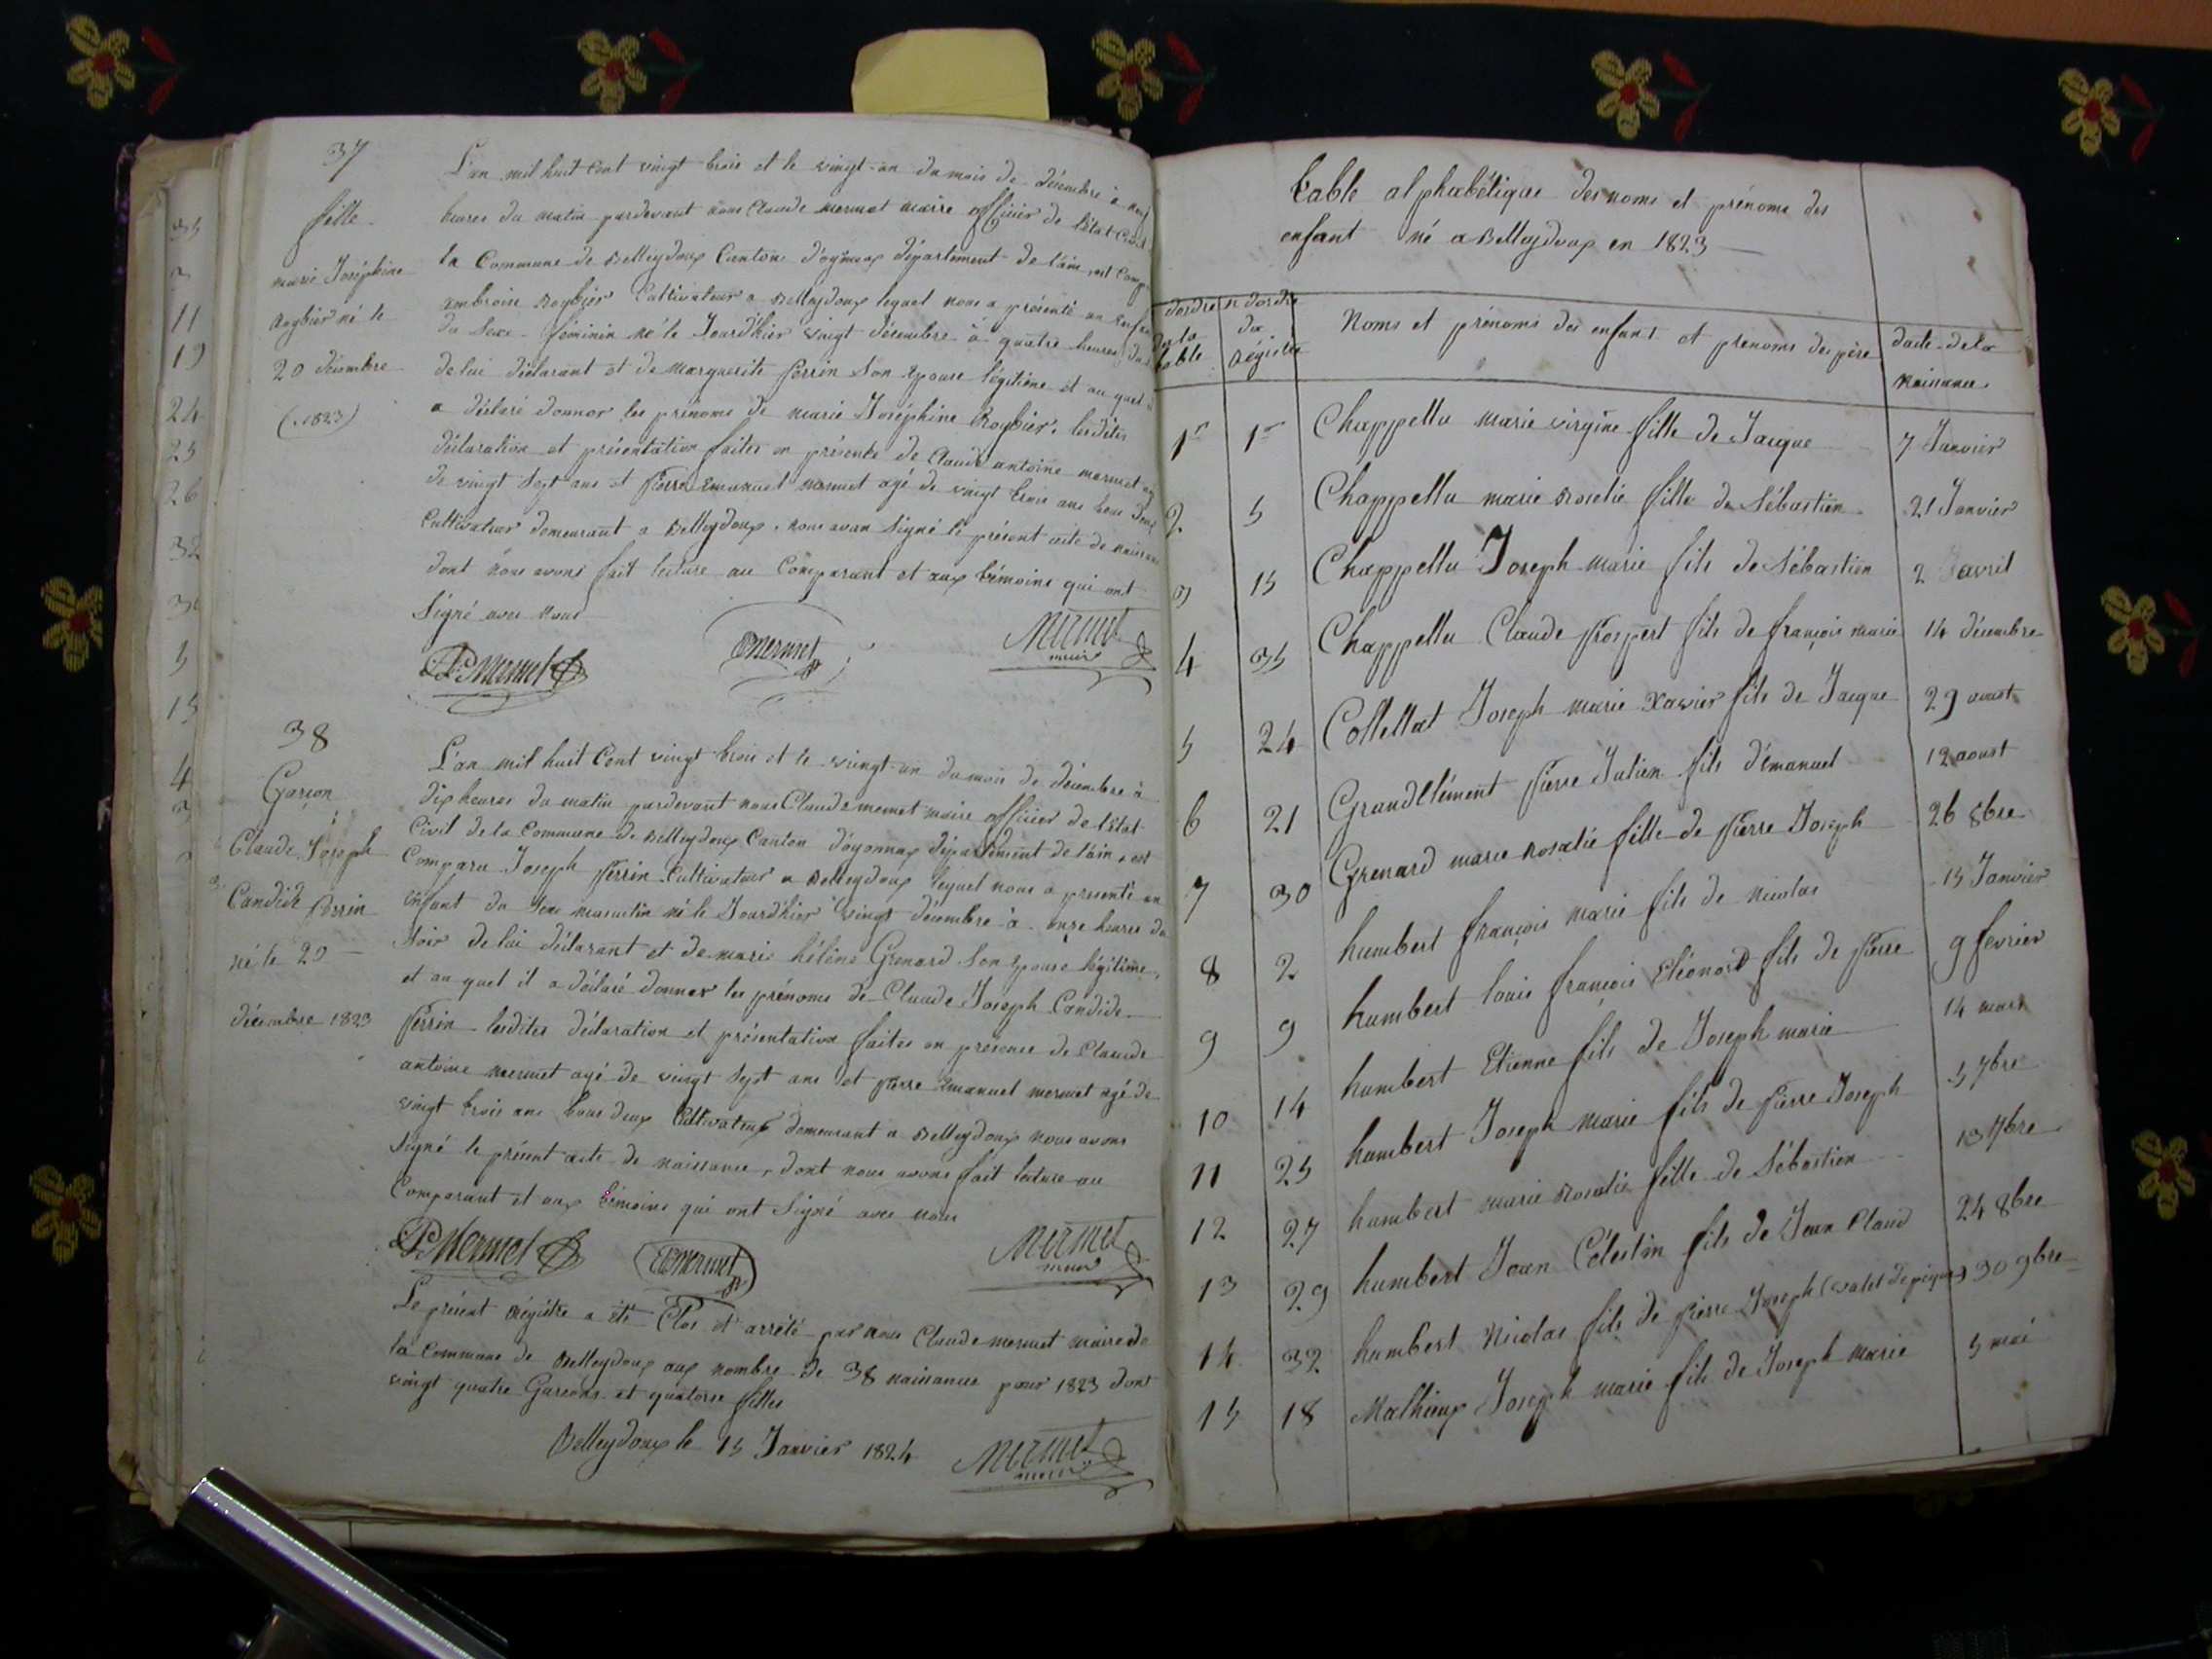 37
fille
marie Joséphine
Roybier né le
20 décembre
(1823)
L'an mil huit Cent vingt trois et le vingt-un du mois de décembre à neuf
heures du matin pardevant nous Claude mermet maire officier de l'état Civil
la Commune de Belleydoux Canton d'oyonnax département de l'ain, est
ambroise Roybier Cultivateur a Belleydoux lequel nous a présenté un
du Sexe féminin né le Jourd'hier vingt décembre à quatre heures du
de lui déclarant et de Marguerite Perrin Son Epouse légitime et au quel
a déclaré donner les prénoms de marie Joséphine Roybier. lesdites
déclaration et présentation faites en présence de Claude antoine mermet
de vingt Sept ans et Pierre Emanuel mermet agé de vingt trois ans tous deux
Cultivateur demeurant a Belleydoux, nous avon Signé le présent acte de
dont nous avons fait lecture au Comparant et aux témoins qui ont
Signé avec nous
Mermet
Mermet
Mermet
maire
38
Garçon
Claude Joseph
Candide Perrin
né le 20
décembre 1823
L'an mil huit Cent vingt trois et le vingt-un du mois de décembre à
dix heures du matin pardevant nous Claude mermet maire officier de l'état
Civil de la Commune de Belleydoux Canton d'oyonnax département de l'ain, est
Comparu Joseph Perrin Cultivateur a Belleydoux lequel nous a présenté un
Enfant du Sexe masculin né le Jourd'hier vingt décembre à onze heures du
Soir de lui déclarant et de marie hélène Grenard Son Epouse légitime,
et au quel il a déclaré donner les prénoms de Claude Joseph Candide
Perrin lesdites déclaration et présentation faites en présence de Claude
antoine mermet agé de vingt Sept ans et Pierre Emanuel mermet agé de
vingt trois ans tous deux Cultivateurs demeurant a Belleydoux nous avons
Signé le présent acte de naissance, dont nous avons fait lecture au
Comparant et aux témoins qui ont Signé avec nous
Mermet
Mermet
Mermet
maire
Le présent Régistre a été Clos et arrêté par nous Claude mermet maire de
la Commune de Belleydoux aux nombre de 38 naissances pour 1823 dont
vingt quatre Garçons et quatorse filles
Belleydoux le 15 Janvier 1824
Mermet
maire
table alphabétique des noms et prénoms des
enfant né a Belleydoux en 1823
dordre de la table
n dordre du régistre
Noms et prénoms des enfant et prénoms des père
date de la naissance
1er 1er Chappellu marie virgine fille de Jacque 7 Janvier
2 5 Chappellu marie Roselie fille de Sébastien 21 Janvier
3 15 Chappellu Joseph marie fils de Sébastien 2 avril
4 35 Chappellu Claude Prospert fils de françois marie 14 décembre
5 24 Collellat Joseph marie Xavier fils de Jacque 29 aoust
6 21 Grandclément Pierre Julien fils d'émanuel 12 aoust
7 30 Grenard marie Rosalie fille de Pierre Joseph 26 8bre
8 2 humbert françois marie fils de nicolas 15 Janvier
9 9 humbert louis françois Eléonord fils de Pierre 9 fevrier
10 14 humbert Etienne fils de Joseph marie 14 mars
11 25 humbert Joseph marie fils de Pierre Joseph 5 7bre
12 27 humbert marie Rosalie fille de Sébastien 13 7bre
13 29 humbert Jean Célestin fils de Jean Claud 24 8bre
14 32 humbert Nicolas fils de Pierre Joseph (valet de pique) 30 9bre
15 18 Mathieux Joseph marie fils de Joseph marie 5 mai
11
19
24
25
26
32
5
15
4